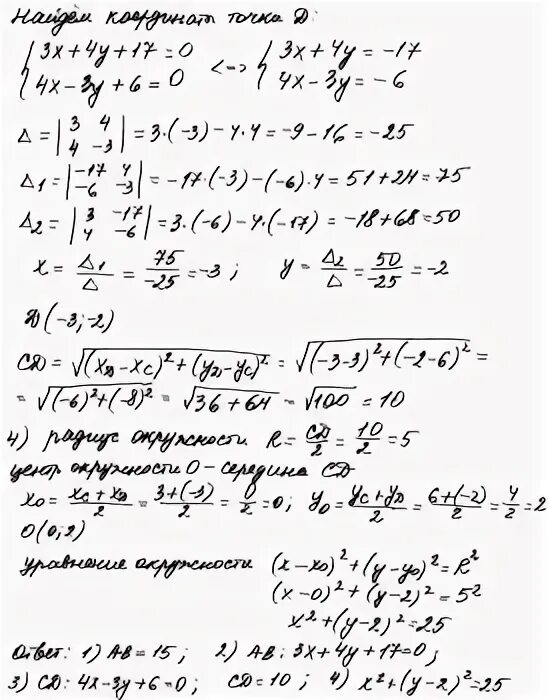 Найдём координаты точки D:
{3x+4y+17=0 <=> {3x+4y=-17
{4x-3y+6=0 {4x-3y=-6
Δ = |3 4; 4 -3| = 3·(-3)-4·4=-9-16=-25
Δ1 = |-17 4; -6 -3| = -17·(-3)-(-6)·4=51+24=75
Δ2 = |3 -17; 4 -6| = 3·(-6)-4·(-17)=-18+68=50
x = Δ1/Δ = 75/-25 = -3; y = Δ2/Δ = 50/-25 = -2
D(-3;-2)
CD = √((xD-xC)²+(yD-yC)²) = √((-3-3)²+(-2-6)²) =
= √((-6)²+(-8)²) = √(36+64) = √100 = 10
4) радиус окружности R = CD/2 = 10/2 = 5
центр окружности O - середина CD
x0 = (xC+xD)/2 = (3+(-3))/2 = 0/2 = 0; y0 = (yC+yD)/2 = (6+(-2))/2 = 4/2 = 2
O(0;2)
уравнение окружности (x-x0)²+(y-y0)²=R²
(x-0)²+(y-2)²=5²
x²+(y-2)²=25
Ответ: 1) AB=15; 2) AB: 3x+4y+17=0;
3) CD: 4x-3y+6=0; CD=10; 4) x²+(y-2)²=25